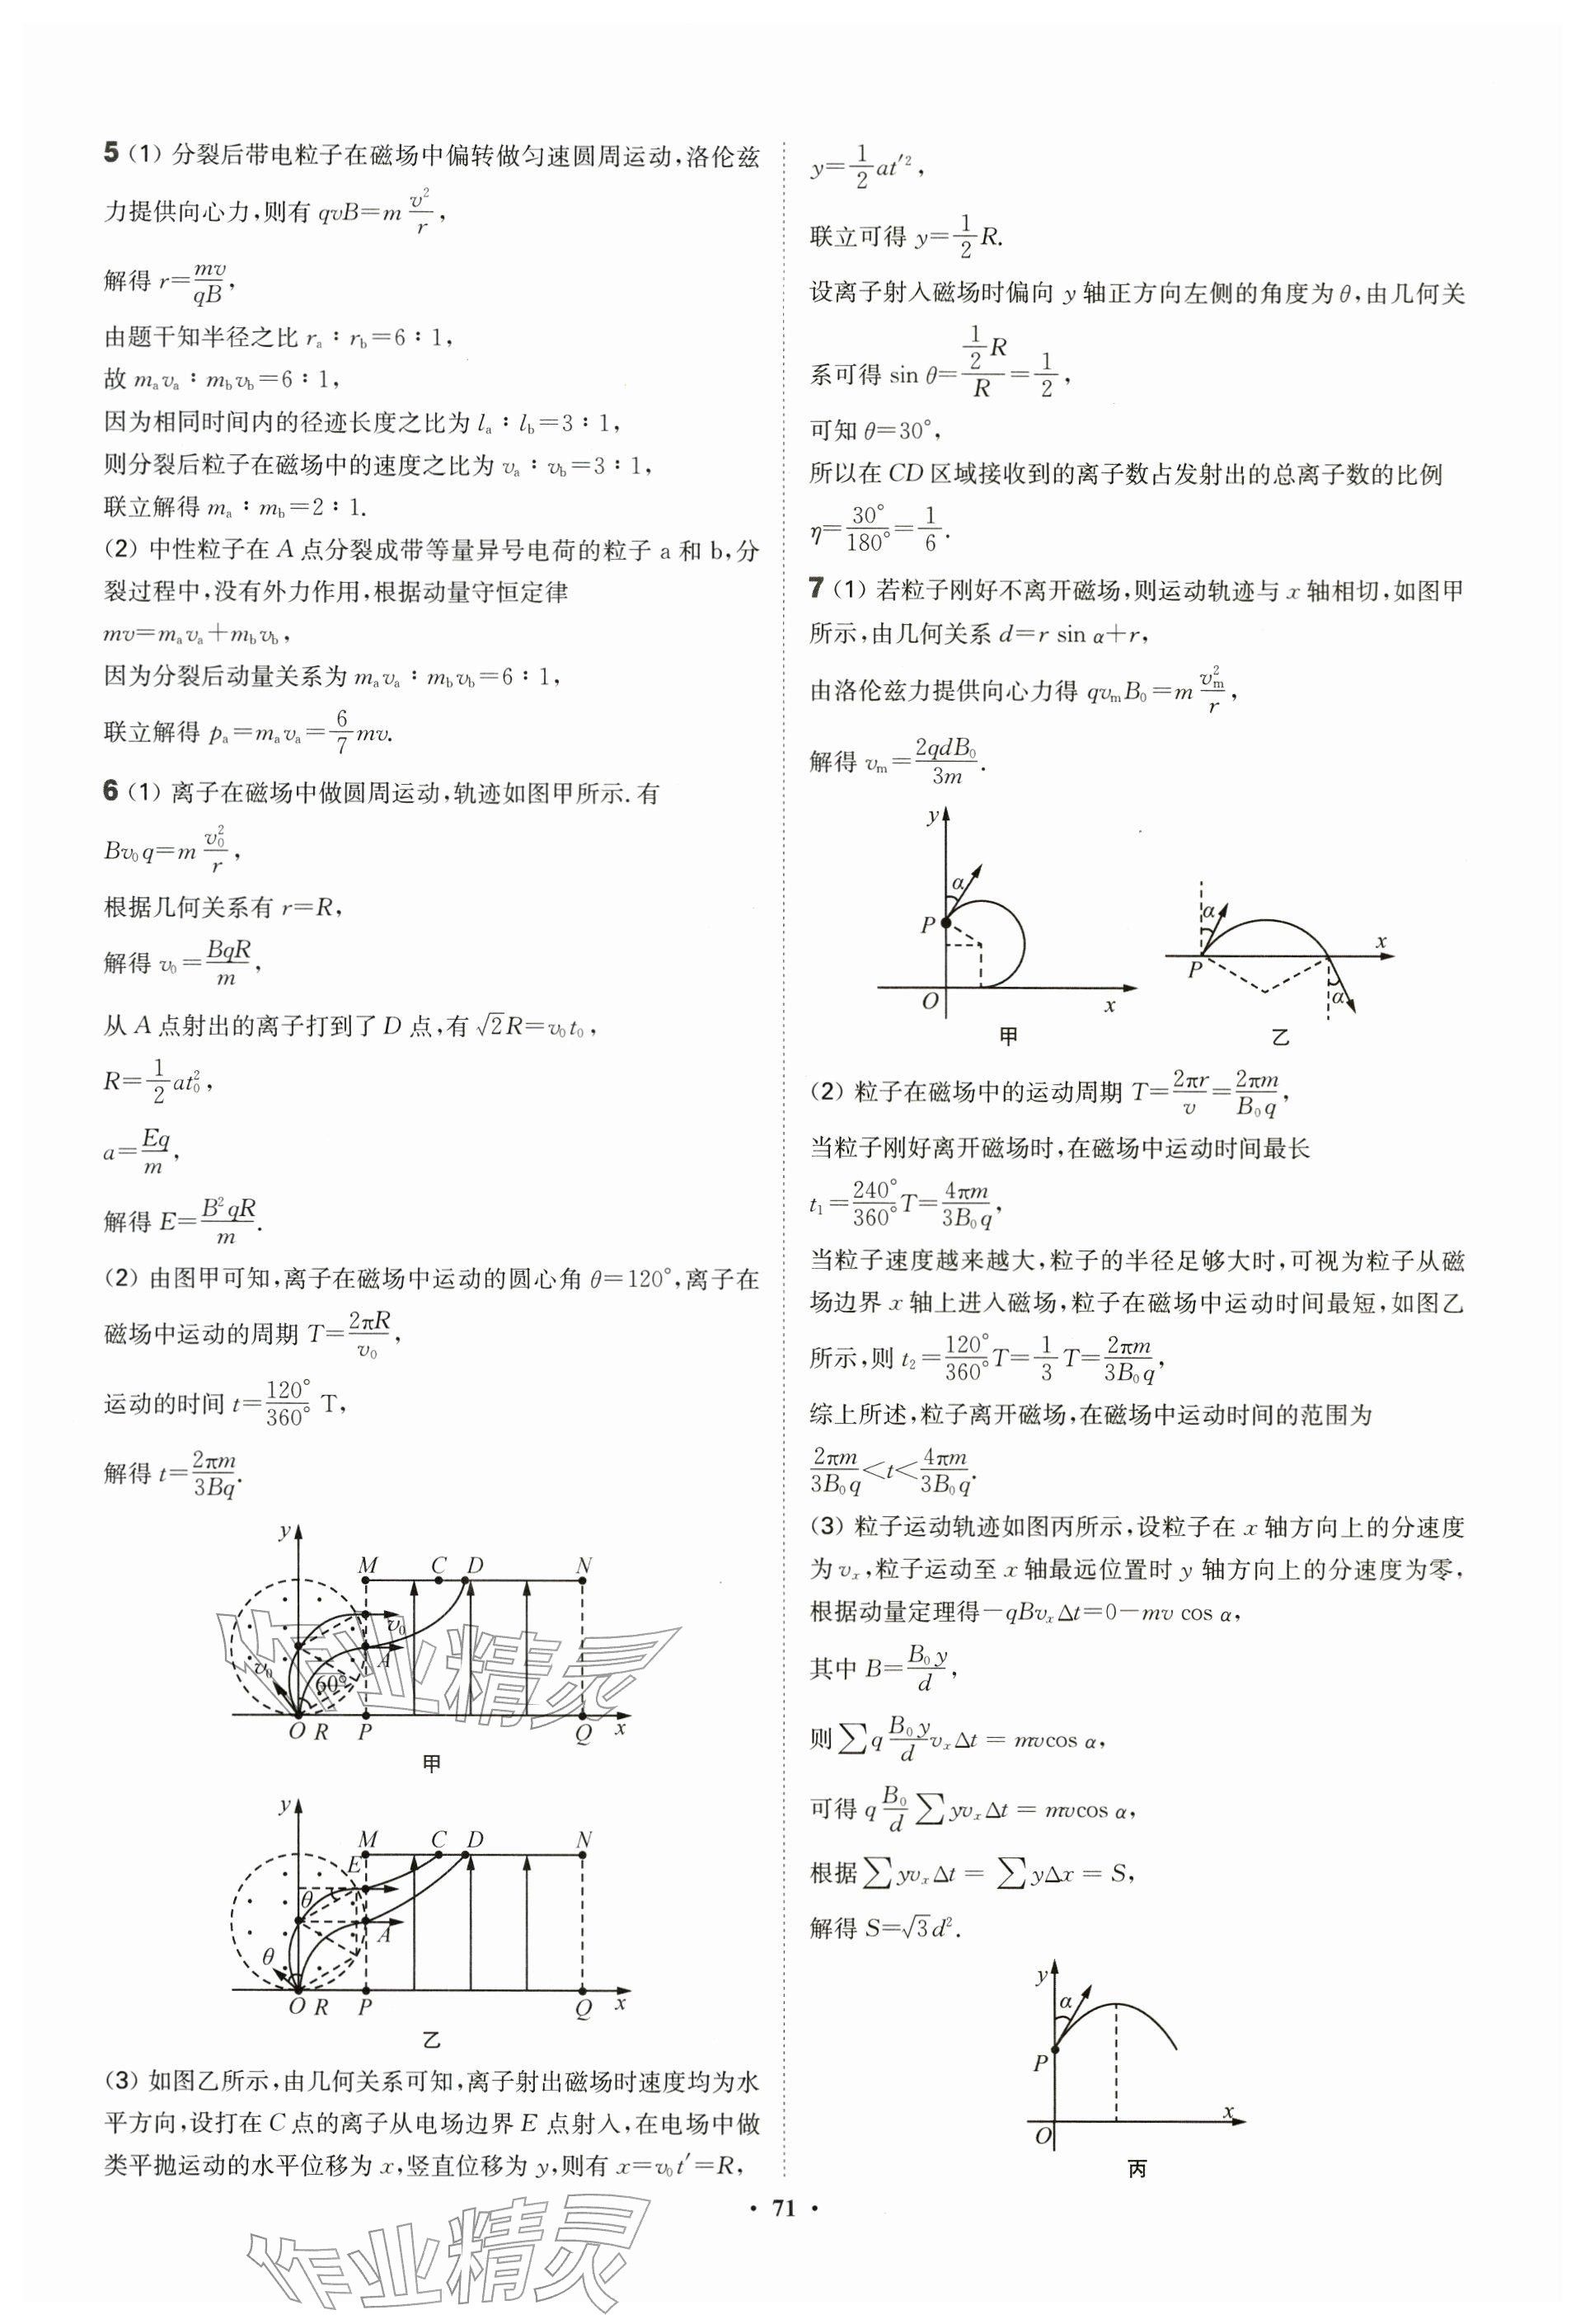 5 (1) 分裂后带电粒子在磁场中偏转做匀速圆周运动,洛伦兹
力提供向心力,则有 qvB=m v²/r,
解得 r=mv/qB,
由题干知半径之比 rₐ∶r_b=6∶1,
故 mₐvₐ∶m_bv_b=6∶1,
因为相同时间内的径迹长度之比为 lₐ∶l_b=3∶1,
则分裂后粒子在磁场中的速度之比为 vₐ∶v_b=3∶1,
联立解得 mₐ∶m_b=2∶1.
(2) 中性粒子在 A 点分裂成带等量异号电荷的粒子 a 和 b,分
裂过程中,没有外力作用,根据动量守恒定律
mv=mₐvₐ+m_bv_b,
因为分裂后动量关系为 mₐvₐ∶m_bv_b=6∶1,
联立解得 pₐ=mₐvₐ=6/7 mv.
6 (1) 离子在磁场中做圆周运动,轨迹如图甲所示. 有
Bv₀q=m v₀²/r,
根据几何关系有 r=R,
解得 v₀=BqR/m,
从 A 点射出的离子打到了 D 点,有 √2R=v₀t₀,
R=1/2 at₀²,
a=Eq/m,
解得 E=B²qR/m.
(2) 由图甲可知,离子在磁场中运动的圆心角 θ=120°,离子在
磁场中运动的周期 T=2πR/v₀,
运动的时间 t=120°/360° T,
解得 t=2πm/3Bq.
y
M C D N
v₀
A
v₀
60°
O R P Q x
甲
y
M C D N
E
θ
A
θ
O R P Q x
乙
(3) 如图乙所示,由几何关系可知,离子射出磁场时速度均为水
平方向,设打在 C 点的离子从电场边界 E 点射入,在电场中做
类平抛运动的水平位移为 x,竖直位移为 y,则有 x=v₀t′=R,
y=1/2 at′²,
联立可得 y=1/2 R.
设离子射入磁场时偏向 y 轴正方向左侧的角度为 θ,由几何关
系可得 sin θ=(1/2 R)/R=1/2,
可知 θ=30°,
所以在 CD 区域接收到的离子数占发射出的总离子数的比例
η=30°/180°=1/6.
7 (1) 若粒子刚好不离开磁场,则运动轨迹与 x 轴相切,如图甲
所示,由几何关系 d=r sin α+r,
由洛伦兹力提供向心力得 qvₘB₀=m vₘ²/r,
解得 vₘ=2qdB₀/3m.
y
α
P
O x
甲
α
P
x
α
乙
(2) 粒子在磁场中的运动周期 T=2πr/v=2πm/B₀q,
当粒子刚好离开磁场时,在磁场中运动时间最长
t₁=240°/360° T=4πm/3B₀q,
当粒子速度越来越大,粒子的半径足够大时,可视为粒子从磁
场边界 x 轴上进入磁场,粒子在磁场中运动时间最短,如图乙
所示,则 t₂=120°/360° T=1/3 T=2πm/3B₀q,
综上所述,粒子离开磁场,在磁场中运动时间的范围为
2πm/3B₀q<t<4πm/3B₀q.
(3) 粒子运动轨迹如图丙所示,设粒子在 x 轴方向上的分速度
为 vₓ,粒子运动至 x 轴最远位置时 y 轴方向上的分速度为零,
根据动量定理得−qBvₓΔt=0−mv cos α,
其中 B=B₀y/d,
则 ∑q B₀y/d vₓΔt = mvcos α,
可得 q B₀/d ∑yvₓΔt = mvcos α,
根据 ∑yvₓΔt = ∑yΔx = S,
解得 S=√3d².
y
α
P
x
O
丙
• 71 •
作业精灵
作业精灵